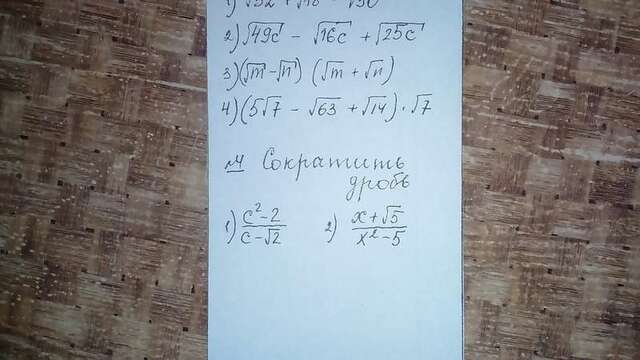 2) √49c - √16c + √25c
3) (√m - √n) (√m + √n)
4) (5√7 - √63 + √14) · √7
№4 Сократить
дробь
1) (c² - 2)/(c - √2) 2) (x + √5)/(x² - 5)